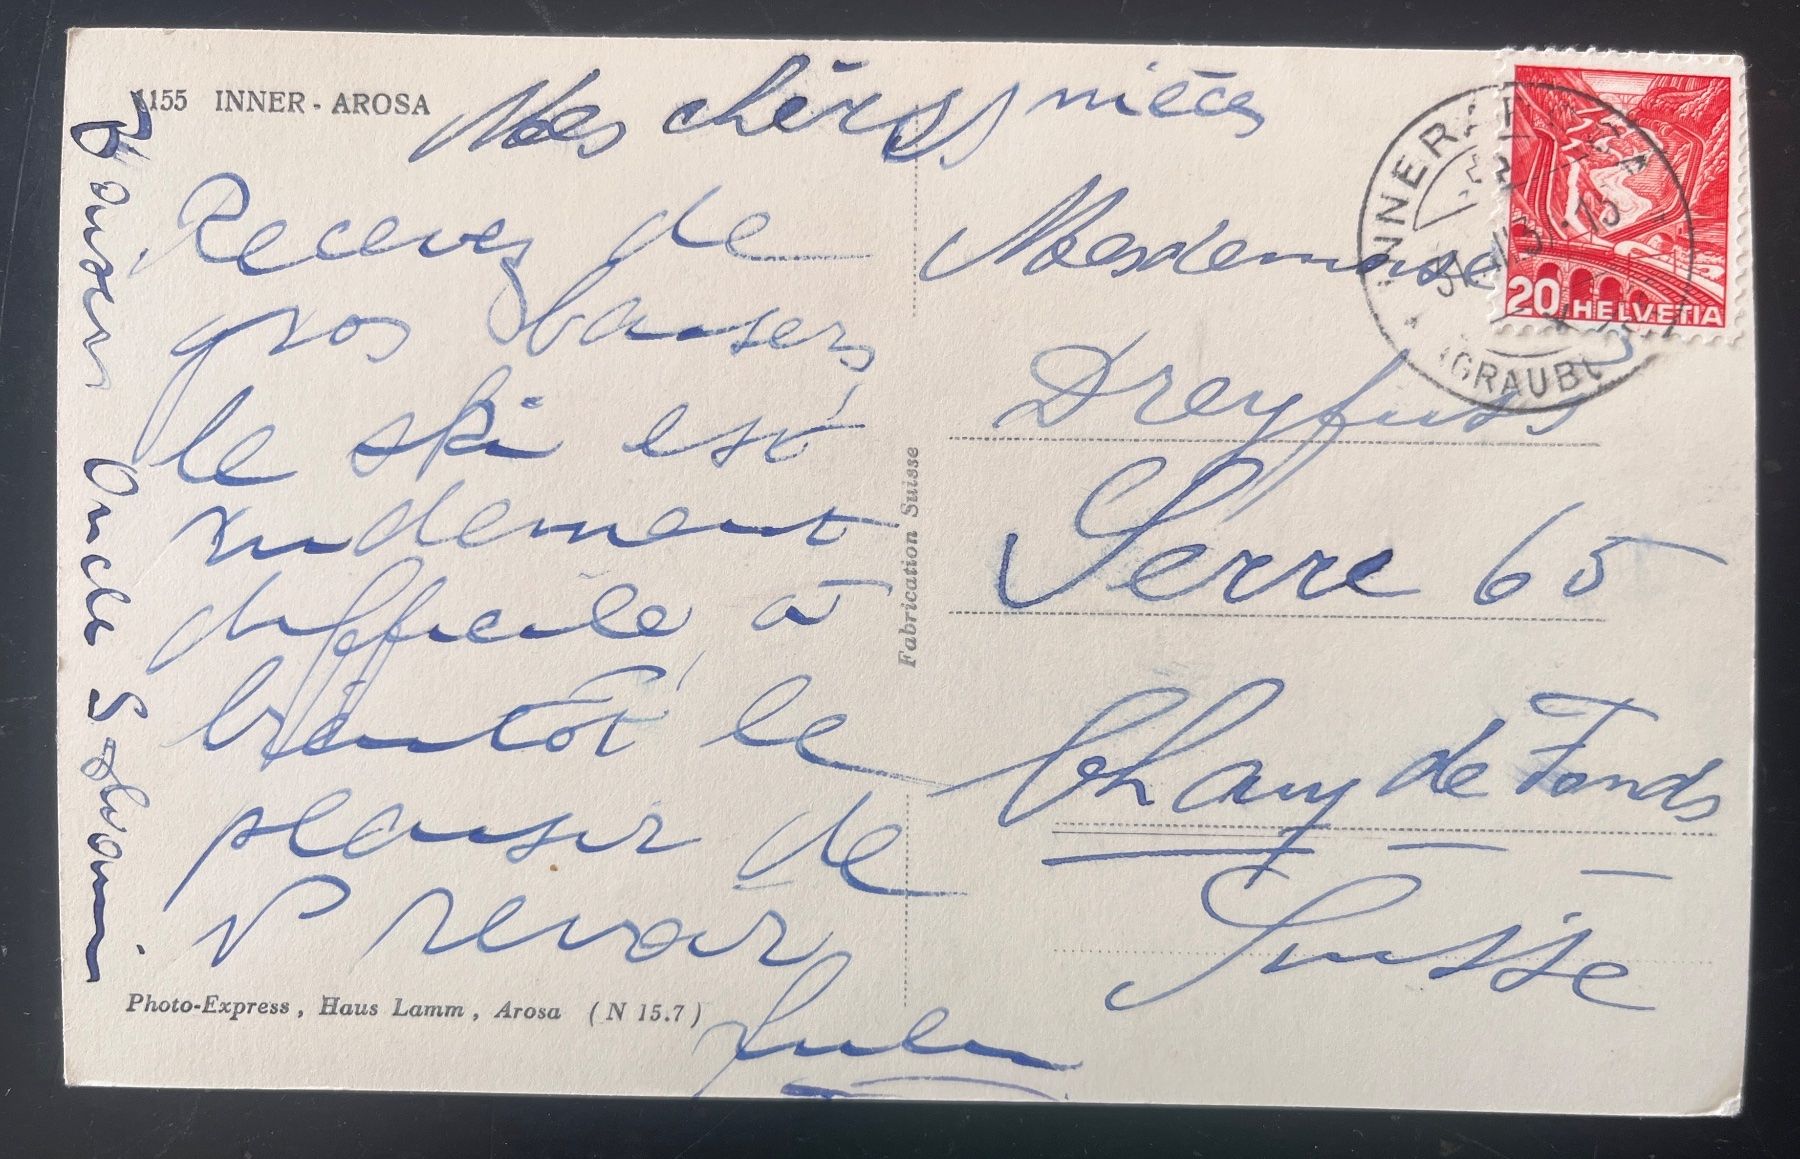 1155 INNER-AROSA
Mes chères nièces
Recevez de
gros baisers
le ski est
rudement
difficile, à
bientôt le
plaisir de
v revoir
Baisers Oncle
Mesdemoise
Dreyfuss
Serre 65
Chaux de Fonds
Suisse
Fabrication Suisse
Photo-Express, Haus Lamm, Arosa (N 15.7)
20 HELVETIA
INNERAROSA
(GRAUB